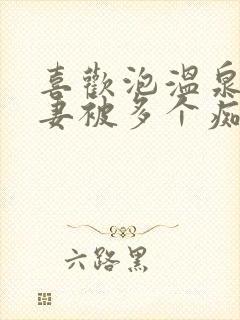 喜歡泡溫泉
妻被多个痴
六路黑